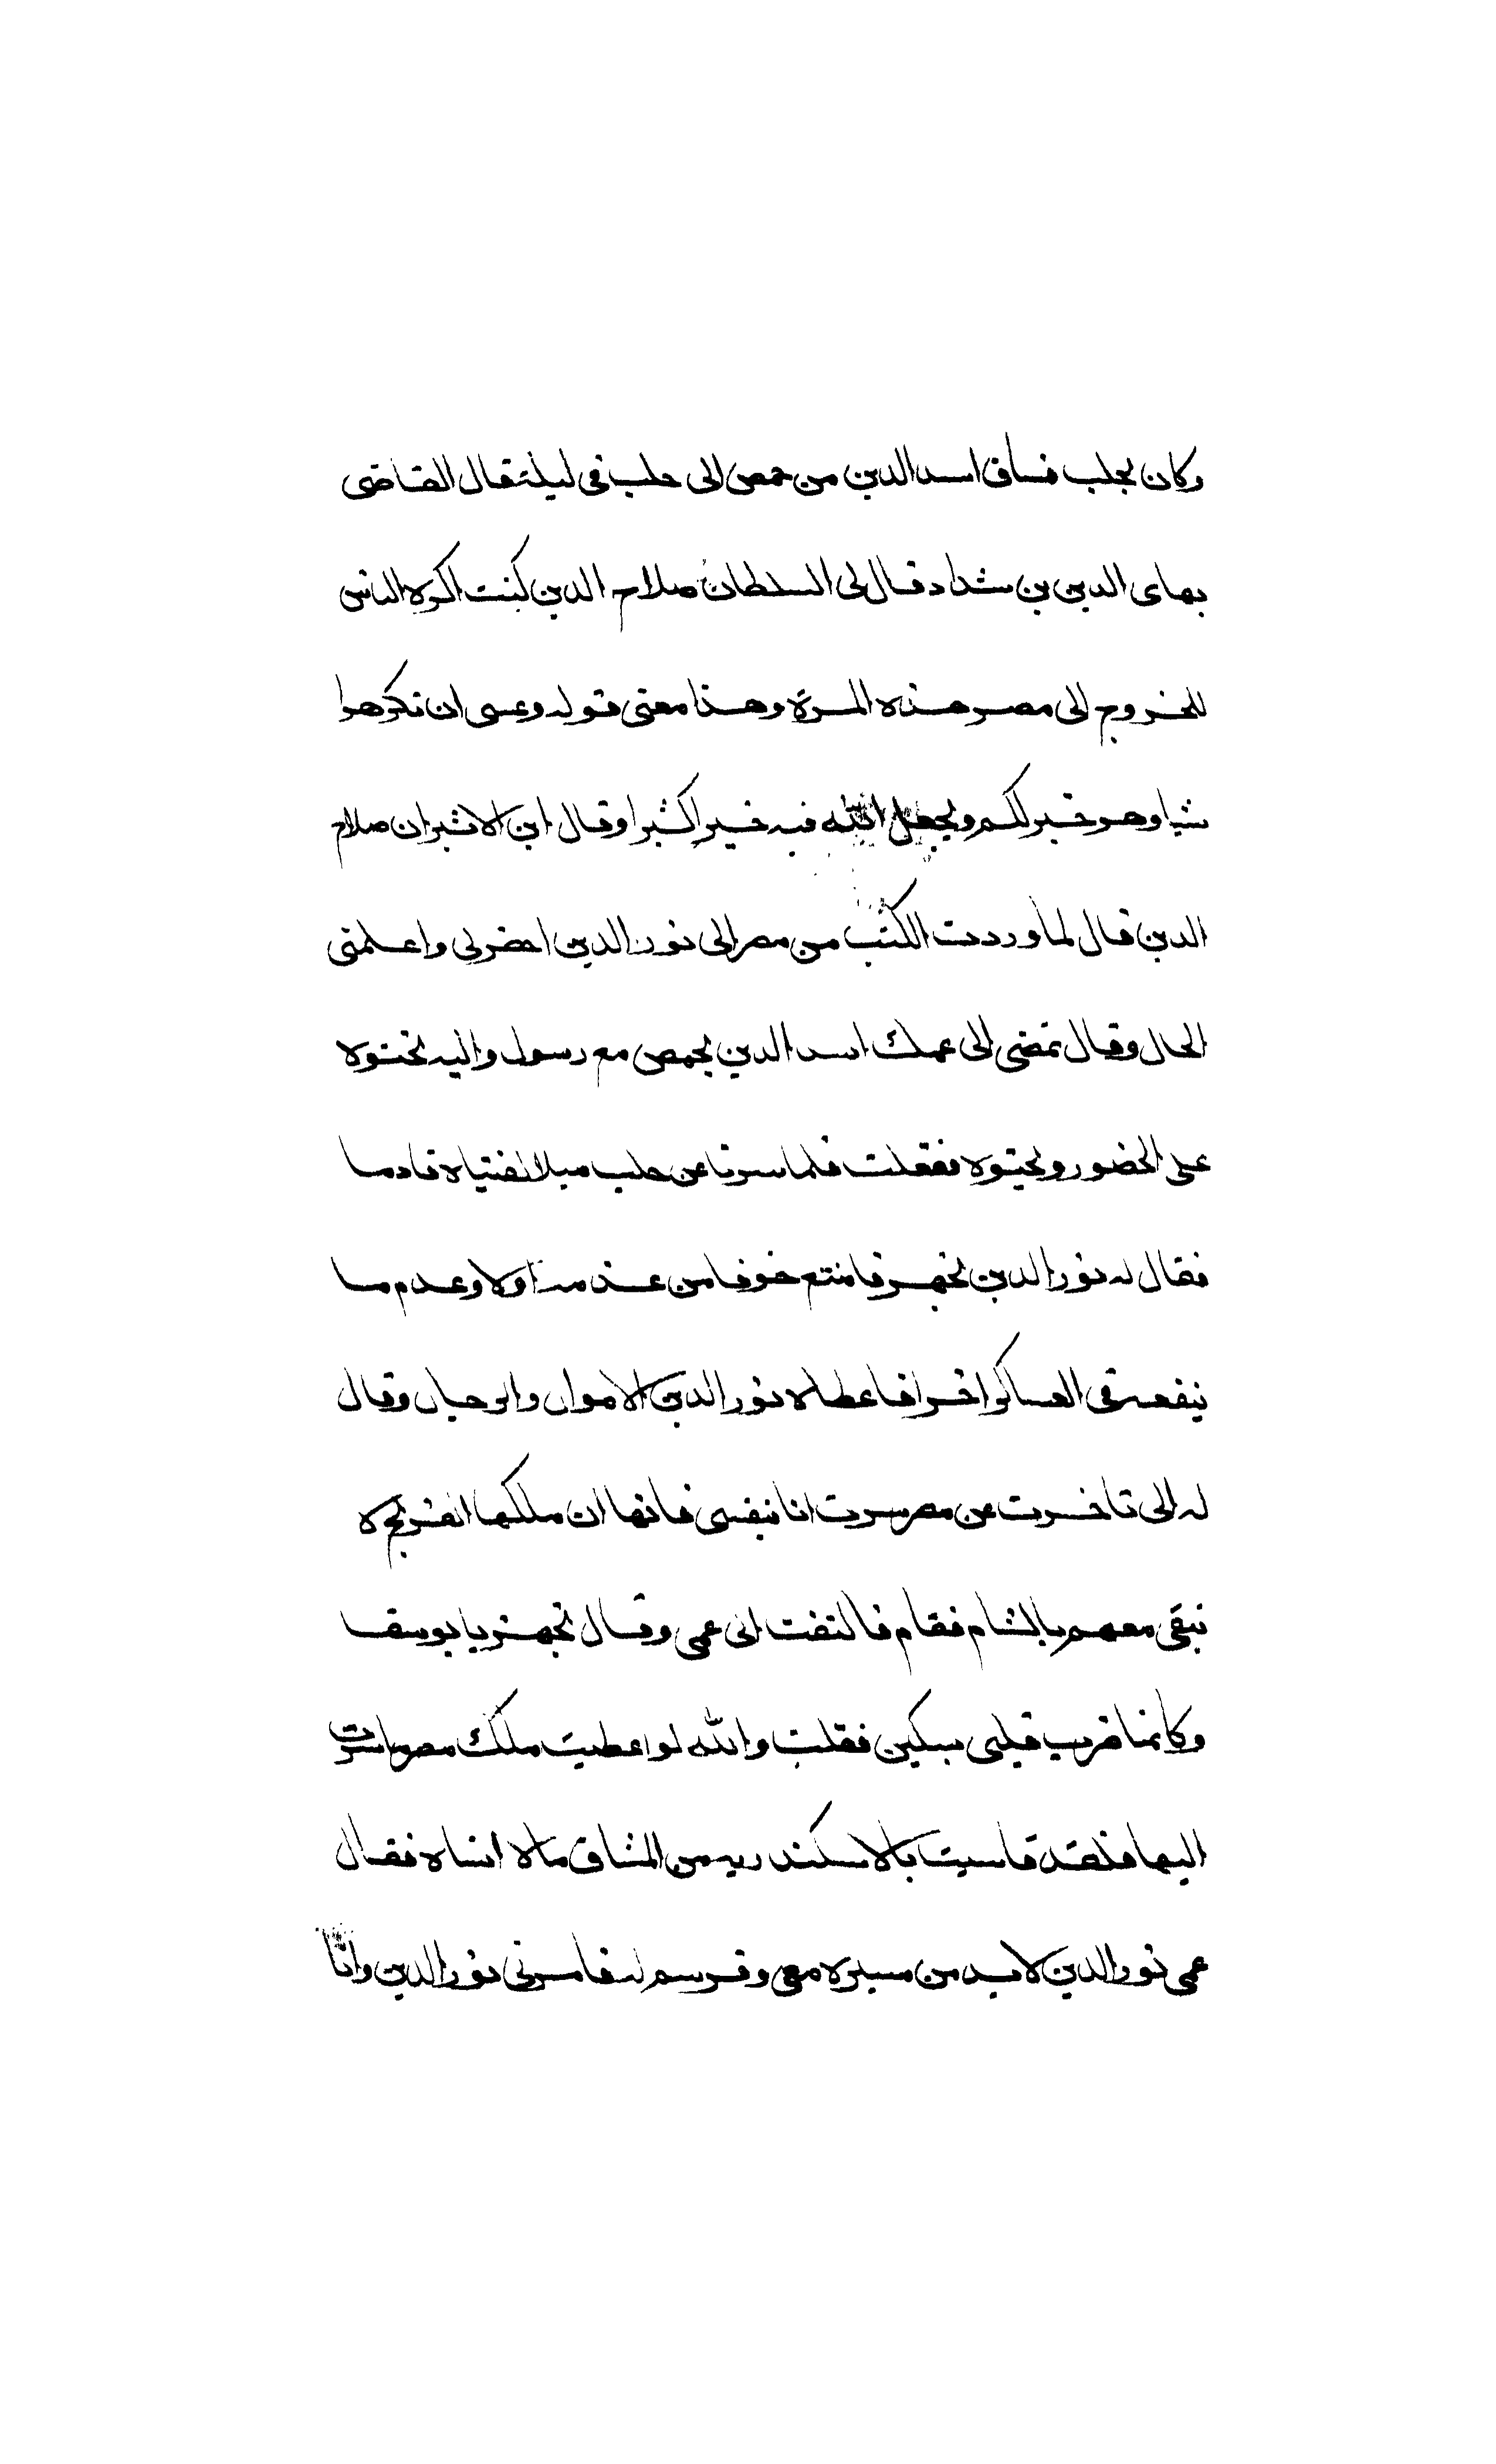 وكان بحلب فساق اسد الدين من حمص الى حلب في ليلة قال القاضي
بهاى الدين بن شداد قال لى السلطان صلاح الدين كنت اكره الناس
للخروج الى مصر هذه المرة وهذا معنى قوله وعسى ان تكرهوا
شيا وهو خير لكم ويجعل الله فيه خيرا كثيرا وقال ابن الاثير ان صلاح
الدين قال لما وردت الكتب من مصر الى نور الدين احضرنى واعلمنى
الحال وقال تمضى الى عمك اسد الدين بحمص مع رسول واليه تحثوه
على الحضور وتحثوه ففعلت فلما سرنا عن حلب ميلا لقيناه قادما
فقال له نور الدين تجهز فامتنع خوفا من غذمه اولا وعدم ما
ينفعه في العساكر اخرا فاعطاه نور الدين الاموال والرجال وقال
له الى تاخرت عن مصر سرت انا بنفسى فانها ان ملكها الفرنج لا
نبقى معهم بالشام فقام فالتفت الى عمى وقال تجهز يا يوسف
وكانما ضرب قلبى بسكين فقلت والله لو اعطيت ملك مصر ما سرت
اليها فلقد قاسيت بالاسكندريه من المشاق مالا انساه فقال
عمى نور الدين لا بد من مسيره معى وفرسم له فامرنى نور الدين وانا